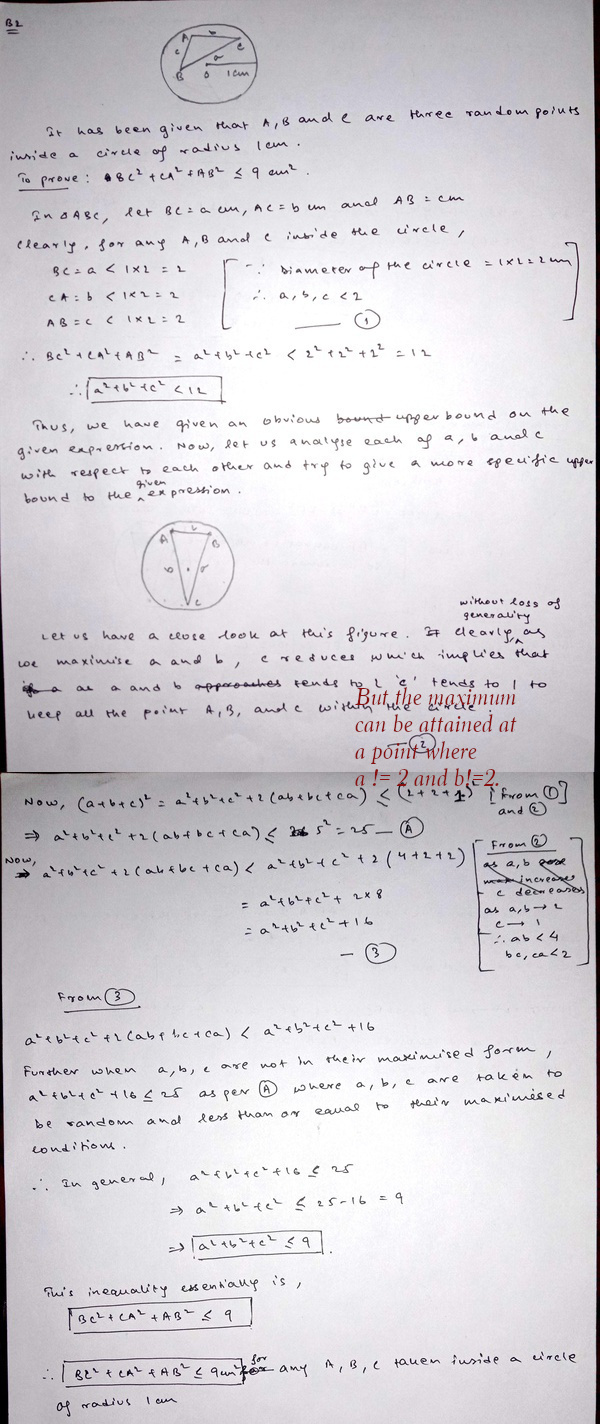 B2
A b C
c a
B O 1cm
It has been given that A, B and C are three random points
inside a circle of radius 1cm.
To prove: BC² + CA² + AB² ≤ 9 cm².
In ΔABC, let BC = a cm, AC = b cm and AB = cm
Clearly, for any A, B and C inside the circle,
BC = a < 1×2 = 2 [∵ Diameter of the circle = 1×2 = 2cm
CA = b < 1×2 = 2 ∴ a, b, c < 2
AB = c < 1×2 = 2 —— ①]
∴ BC² + CA² + AB² = a² + b² + c² < 2² + 2² + 2² = 12
∴ a² + b² + c² < 12
Thus, we have given an obvious bound upper bound on the
given expression. Now, let us analyse each of a, b and c
with respect to each other and try to give a more specific upper
bound to the given expression.
A c B
b a
C
without loss of
generality
Let us have a close look at this figure. It clearly, as
we maximise a and b, c reduces which implies that
a as a and b approaches tends to 2 'c' tends to 1 to
keep all the point A, B, and C within the circle.
— ②
But the maximum
can be attained at
a point where
a != 2 and b!=2.
Now, (a+b+c)² = a²+b²+c²+2(ab+bc+ca) ≤ (2+2+1)² [From ①
and ②]
⇒ a²+b²+c²+2(ab+bc+ca) ≤ 5² = 25 — Ⓐ
Now,
⇒ a²+b²+c²+2(ab+bc+ca) < a²+b²+c²+2(4+2+2)
= a²+b²+c²+2×8
= a²+b²+c²+16
— ③
From ②
as a, b
increases
c decreases
as a, b → 2
c → 1
∴ ab < 4
bc, ca < 2
From ③
a²+b²+c²+2(ab+bc+ca) < a²+b²+c²+16
Further when a, b, c are not in their maximised form,
a²+b²+c²+16 ≤ 25 as per Ⓐ where a, b, c are taken to
be random and less than or equal to their maximised
conditions.
∴ In general, a²+b²+c²+16 ≤ 25
⇒ a²+b²+c² ≤ 25-16 = 9
⇒ a²+b²+c² ≤ 9.
This inequality essentially is,
BC²+CA²+AB² ≤ 9
∴ BC²+CA²+AB² ≤ 9cm² for any A, B, C taken inside a circle
of radius 1cm